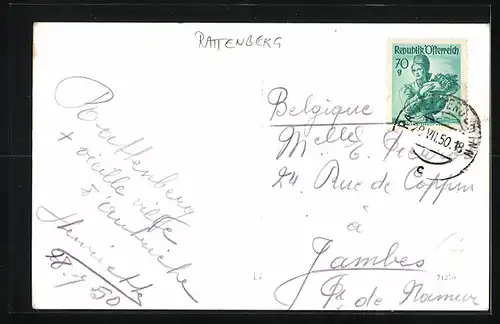 RATTENBERG
Republik Österreich
70
g
28.VII.50.18
c
Rattenberg
+ vieille ville
d'Autriche
Henriette
28-7-50
Belgique
Melle E.
24 Rue de Coppin
à
Jambes
Pr de Namur